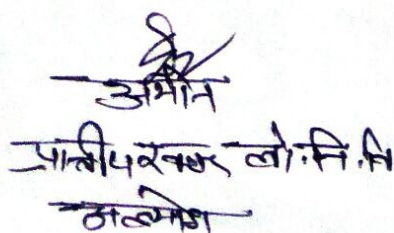 अमीन
प्रान्तीय खण्ड लो.नि.वि
अल्मोड़ा